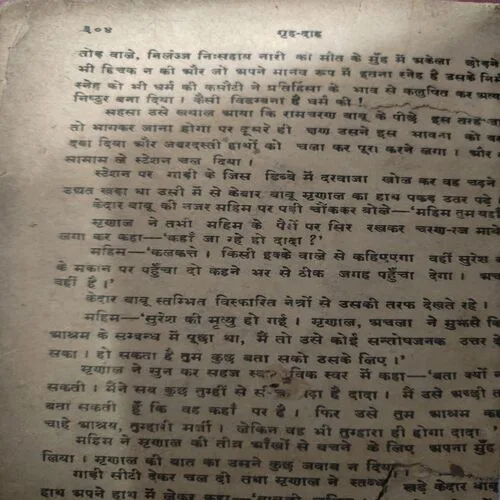 ३०४ गृह-दाह
तोड़ वाले, निर्लज्ज निःसहाय नारी को मौत के मुँह में अकेला छोड़ने
भी हिचक न की और जो अपने मानव रूप में इतना स्नेह है उसके
स्नेह को भी धर्म की कसौटी ने प्रतिहिंसा के भाव से कलुषित कर
निष्ठुर बना दिया ! कैसी विडम्बना है धर्म की !
सहसा उसे ख़याल आया कि रामचरण बाबू के पीछे इस तरह
तो भागकर जाना होगा पर दूसरे ही क्षण उसने इस भावना को
दबा दिया और जबरदस्ती हाथों को चला कर पूरा करने लगा । और
सामान ले स्टेशन चल दिया ।
स्टेशन पर गाड़ी के जिस डिब्बे में दरवाजा खोल कर वह चढ़ने
उद्यत खड़ा था उसी में से केदार बाबू मृणाल का हाथ पकड़ उतर पड़े ।
केदार बाबू की नजर महिम पर पड़ी चौंककर बोले—'महिम तुम यहाँ
मृणाल ने तभी महिम के पैरों पर सिर रखकर चरण-रज माथे
लगा कर कहा—'कहाँ जा रहे हो दादा ?'
महिम—'कलकत्ते । किसी इक्के वाले से कहिएगा वहीं सुरेश
के मकान पर पहुँचा दो कहने भर से ठीक जगह पहुँचा देगा ।
वहीं है ।'
केदार बाबू स्तम्भित विस्फारित नेत्रों से उसकी तरफ देखते रहे ।
महिम—'सुरेश की मृत्यु हो गई । मृणाल, अचला ने मुझसे
आश्रम के सम्बन्ध में पूछा था, मैं तो उसे कोई सन्तोषजनक उत्तर
सका । हो सकता है तुम कुछ बता सको उसके लिए ।'
मृणाल ने सुन कर सहज स्वर में कहा—'बता क्यों
सकती । मैंने सब कुछ तुम्हीं से है दादा । मैं उसे अच्छी
बता सकती हूँ कि वह कहाँ पर है । फिर उसे तुम आश्रम
चाहे आश्रय, तुम्हारी मर्जी । लेकिन वह भी तुम्हारा ही होगा दादा '
महिम ने मृणाल की तीव्र आँखों से बचने के लिए अपना मुँह
लिया । मृणाल की बात का उसने कुछ जवाब न दिया
गाड़ी सीटी देकर चल दी तथा मृणाल ने स्तब्ध खड़े केदार बाबू
हाथ अपने हाथ में लेकर कहा—